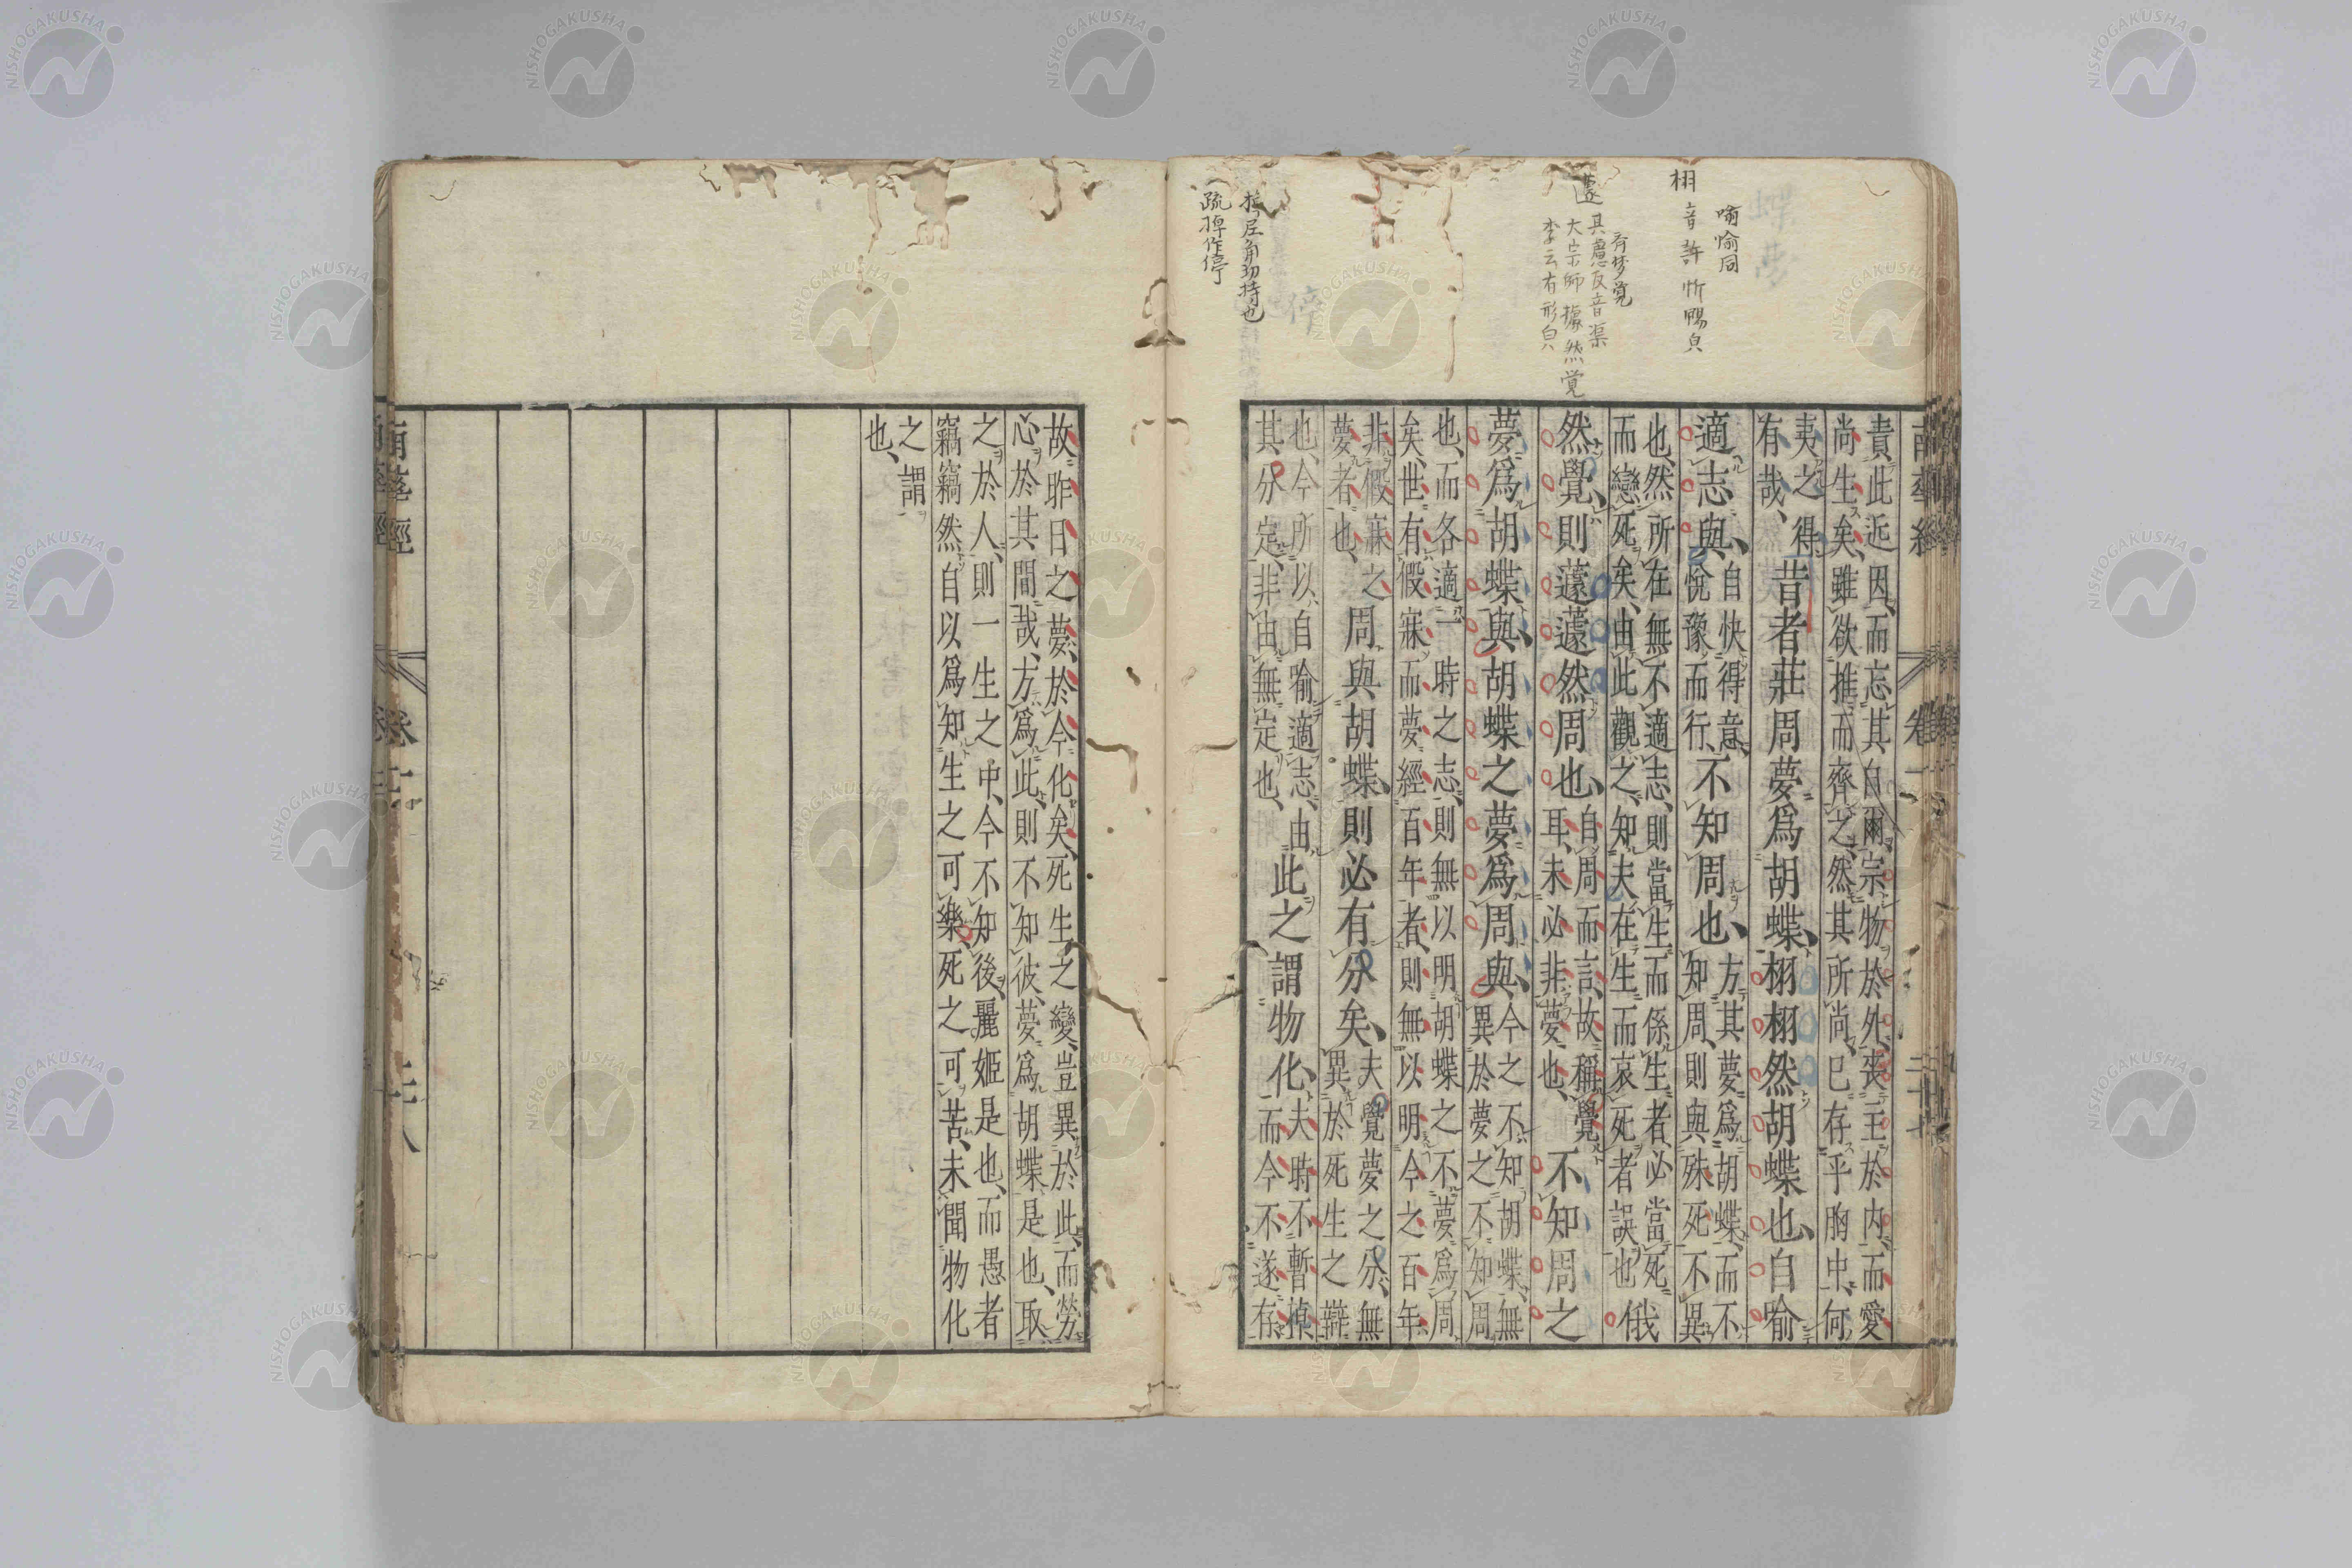 喻喩同
栩 音許忻暢皃
齊夢覚
蘧 其慮反音渠
大宗師據然覚
李云有形皃
疏掉作停
責此近因、而忘其自爾、宗物於外、喪主於内、而愛
尚生矣、雖欲推而齊之、然其所尚、已存乎胸中、何
夷之得
有哉、
昔者莊周夢爲胡蝶、栩栩然胡蝶也、自喻
適志與、
自快得意、
悅豫而行、
不知周也、
方其夢爲胡蝶、而不
知周、則與殊死不異
也、然所在無不適志、則當生而係生者、必當死
而戀死矣、由此觀之、知夫在生而哀死者誤也
俄
然覺、則蘧蘧然周也、
自周而言、故稱覺
耳、未必非夢也、
不知周之
夢爲胡蝶與、胡蝶之夢爲周與、
今之不知胡蝶、無
異於夢之不知周
也、而各適一時之志、則無以明胡蝶之不夢爲周
矣、世有假寐而夢經百年者、則無以明今之百年
非假寐之
夢者也、
周與胡蝶、則必有分矣、
夫覺夢之分、無
異於死生之辯
也、今所以自喻適志、由
其分定、非由無定也、
此之謂物化、
夫時不暫掉
而今不遂存
故昨日之夢、於今化矣、死生之變、豈異於此、而勞
心於其間哉、方爲此、則不知彼、夢爲胡蝶是也、取
之於人、則一生之中、今不知後、麗姬是也、而愚者
竊竊然自以爲知生之可樂、死之可苦、未聞物化
之謂
也、
南華經 卷一 二十七
南華經 卷二
NISHOGAKUSHA